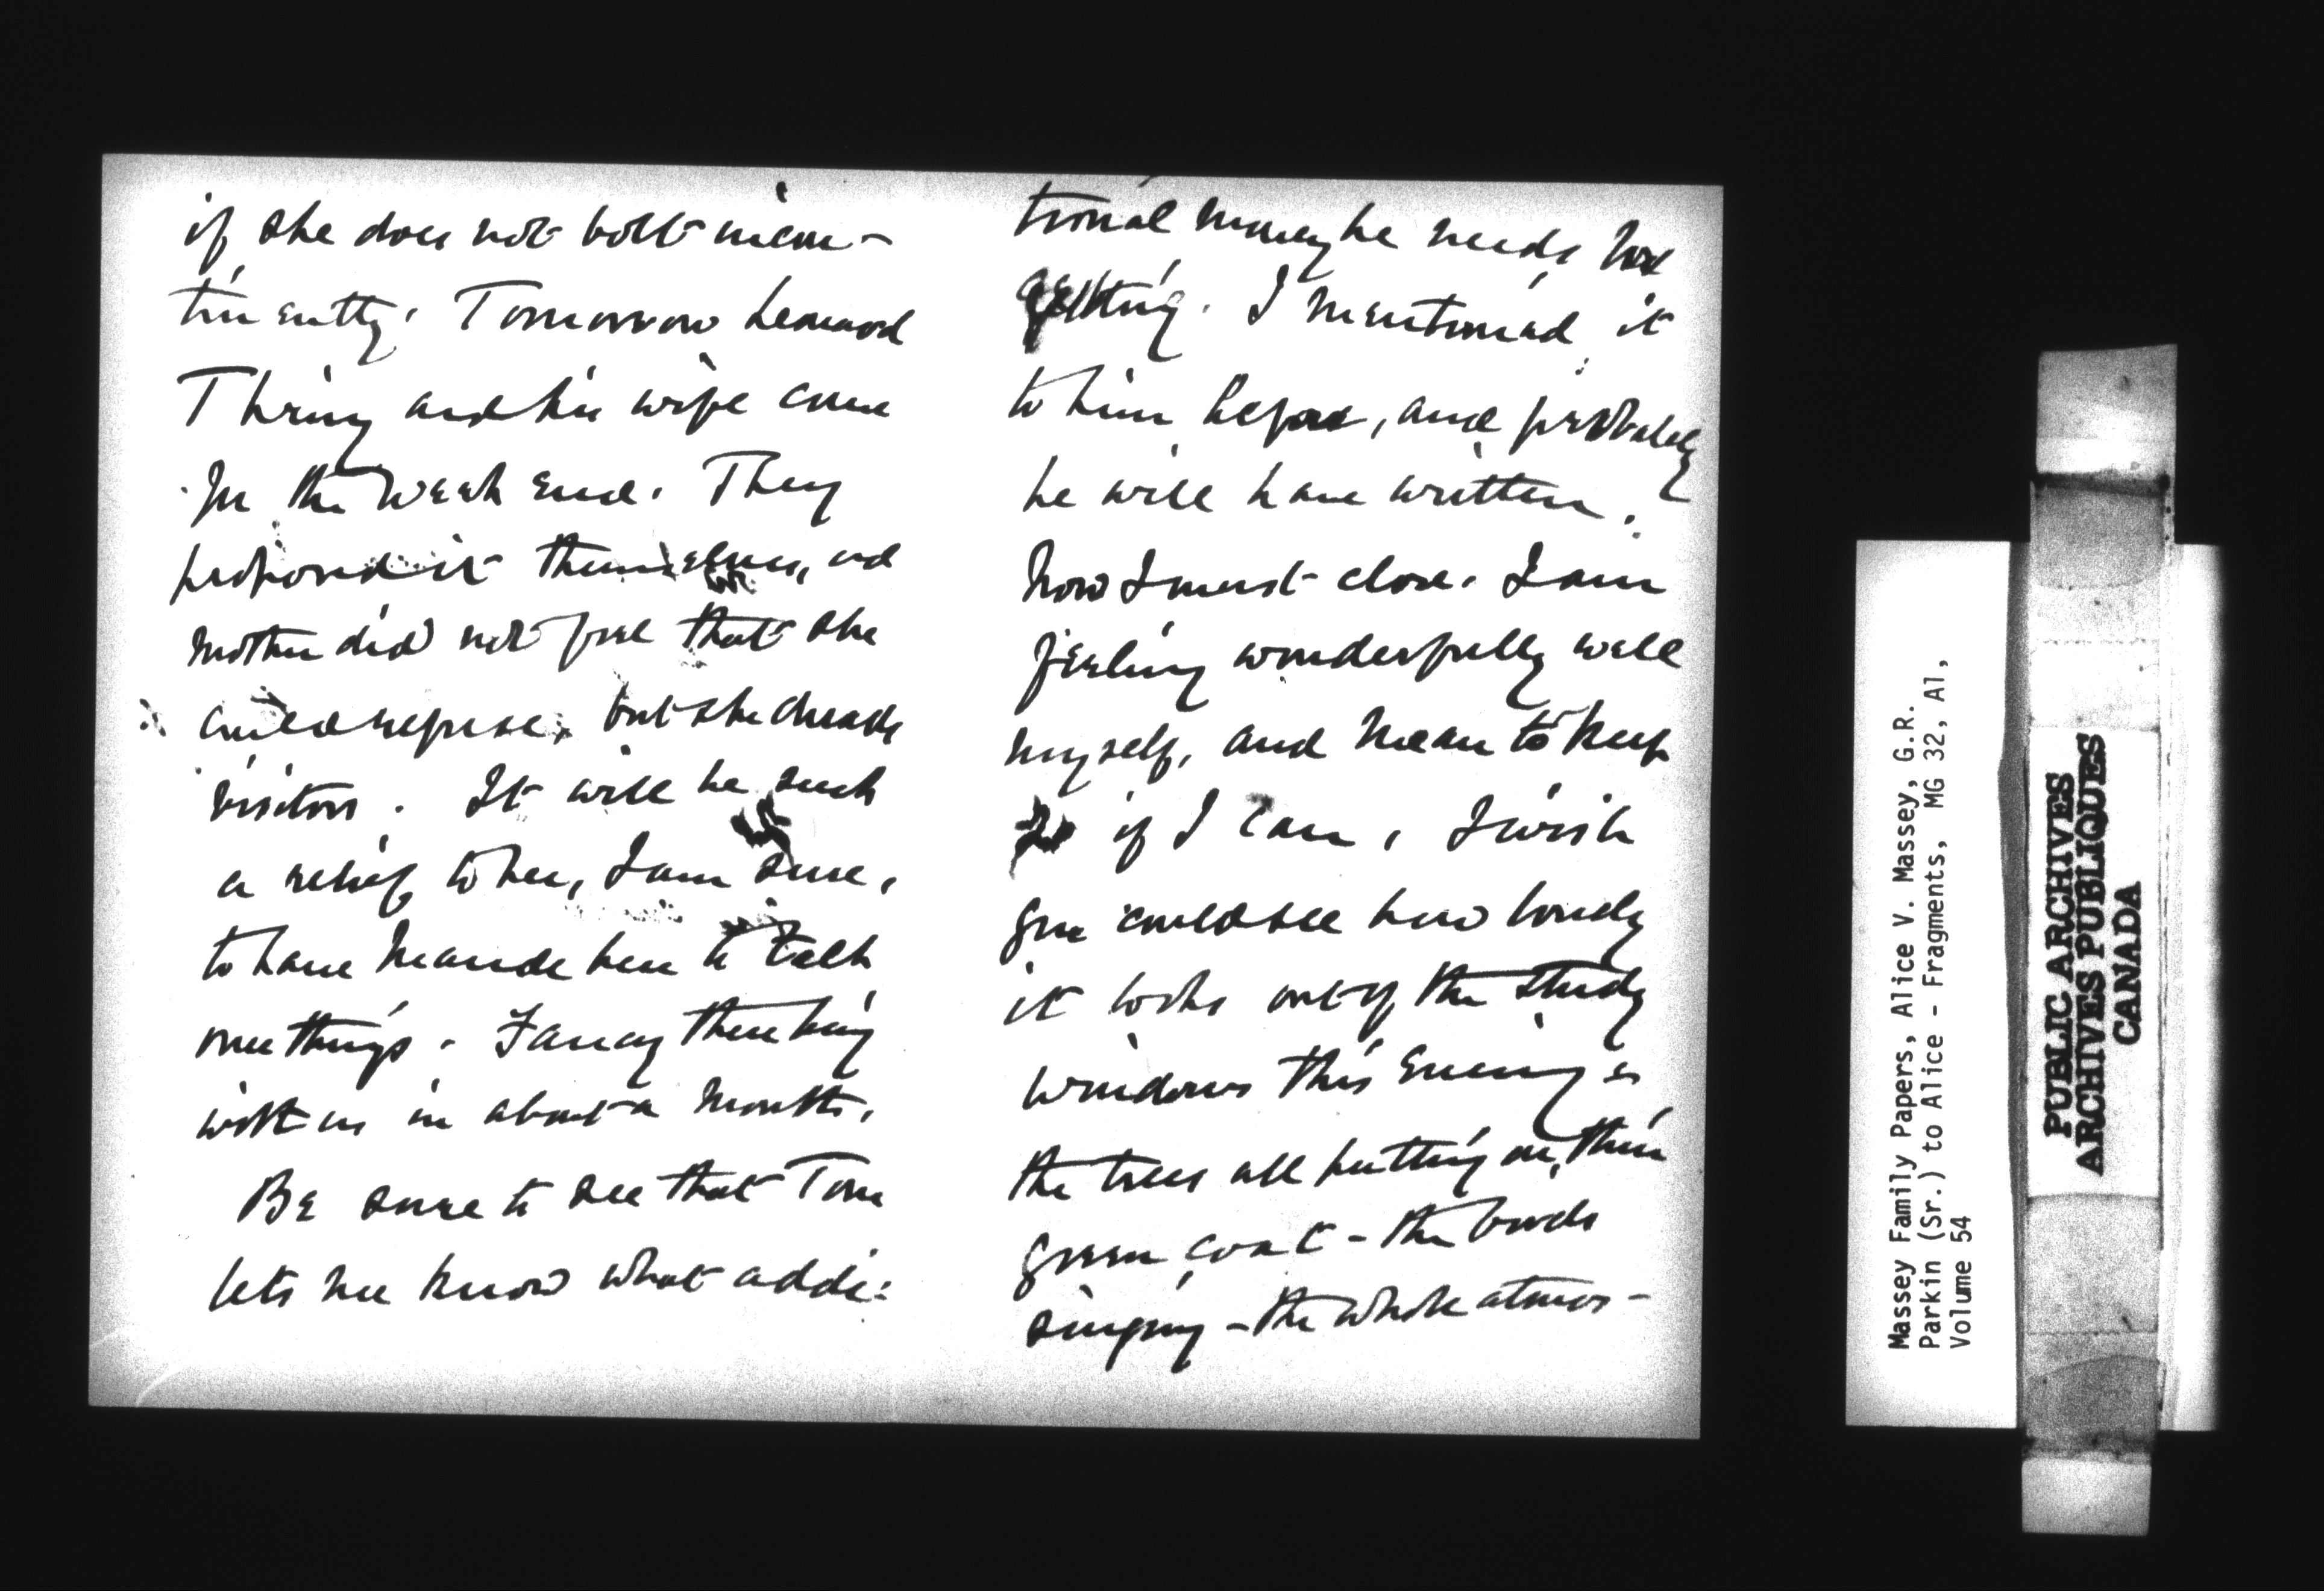 if she does not bolt incon-
tinently. Tomorrow Leonard
Thring and his wife come
for the week end. They
proposed it themselves, and
mother did not feel that she
could refuse, but she dreads
visitors. It will be such
a relief to her, I am sure,
to have Maude here to talk
over things. Fancy there being
with us in about a month.
Be sure to see that Tom
lets me know what addi-
tional money he needs for
getting. I mentioned it
to him before, and probably
he will have written.
Now I must close. I am
feeling wonderfully well
myself, and mean to keep
so if I can, I wish
you could see how lovely
it looks out of the study
windows this evening
the trees all putting on their
green coat - the birds
singing - the whole atmos-
Massey Family Papers, Alice V. Massey, G.R.
Parkin (Sr.) to Alice - Fragments, MG 32, A1,
Volume 54
PUBLIC ARCHIVES
ARCHIVES PUBLIQUES
CANADA